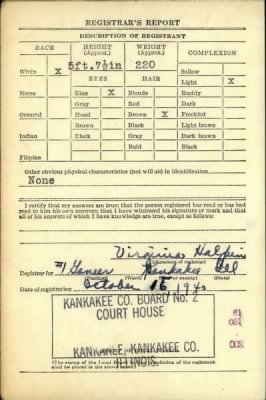 REGISTRAR'S REPORT
DESCRIPTION OF REGISTRANT
RACE HEIGHT (Approx.) WEIGHT (Approx.) COMPLEXION
5ft.7½in 220 Sallow
White X EYES HAIR Light X
Negro Blue X Blonde Ruddy
Gray Red Dark
Oriental Hazel Brown X Freckled
Brown Black Light brown
Indian Black Gray Dark brown
Bald Black
Filipino
Other obvious physical characteristics that will aid in identification
None
I certify that my answers are true; that the person registered has read or has had
read to him his own answers; that I have witnessed his signature or mark and that
all of his answers of which I have knowledge are true, except as follows:
Virginia Halpin
(Signature of registrar)
Registrar for #1 Kankakee Ill
Date of registration October 16, 1940
KANKAKEE CO. BOARD NO. 2
COURT HOUSE
KANKAKEE, KANKAKEE CO.
ILLINOIS.
(The stamp of the Local Board
shall be placed in the above space.)